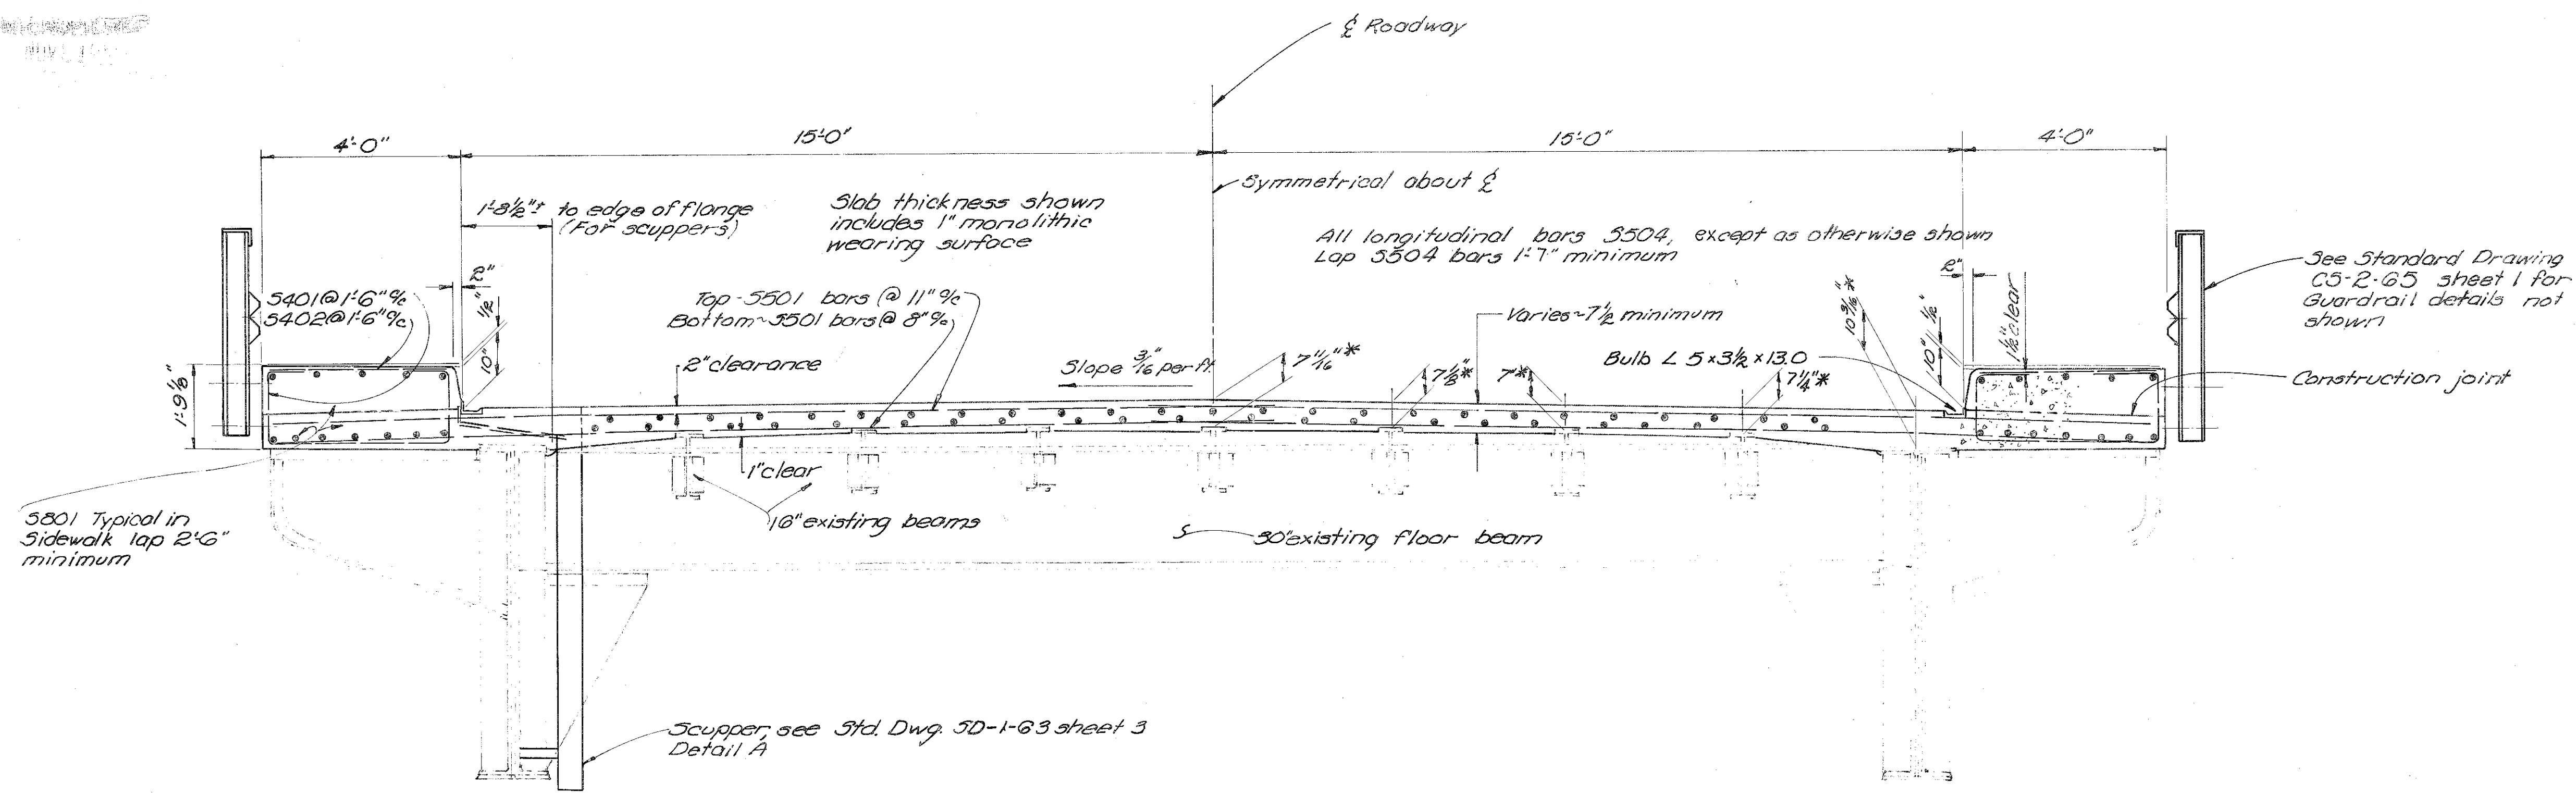 ℄ Roadway
4'-0"
15'-0"
15'-0"
4'-0"
Symmetrical about ℄
1'-8½"± to edge of flange
(For scuppers)
Slab thickness shown
includes 1" monolithic
wearing surface
All longitudinal bars S504, except as otherwise shown
Lap S504 bars 1'-7" minimum
See Standard Drawing
CS-2-65 sheet 1 for
Guardrail details not
shown
2"
2"
S401@1'-6" %
S402@1'-6" %
½"
10"
Top-S501 bars @ 11" %
Bottom~S501 bars @ 8" %
Varies~7½ minimum
10 9/16"*
½"
10"
1½" clear
2" clearance
Slope 3/16" per ft.
7 11/16"*
7⅛"*
7"*
Bulb L 5×3½×13.0
7¼"*
Construction joint
1'-9⅛"
1" clear
16" existing beams
30" existing floor beam
S801 Typical in
Sidewalk lap 2'-6"
minimum
Scupper, see Std. Dwg. SD-1-63 sheet 3
Detail A